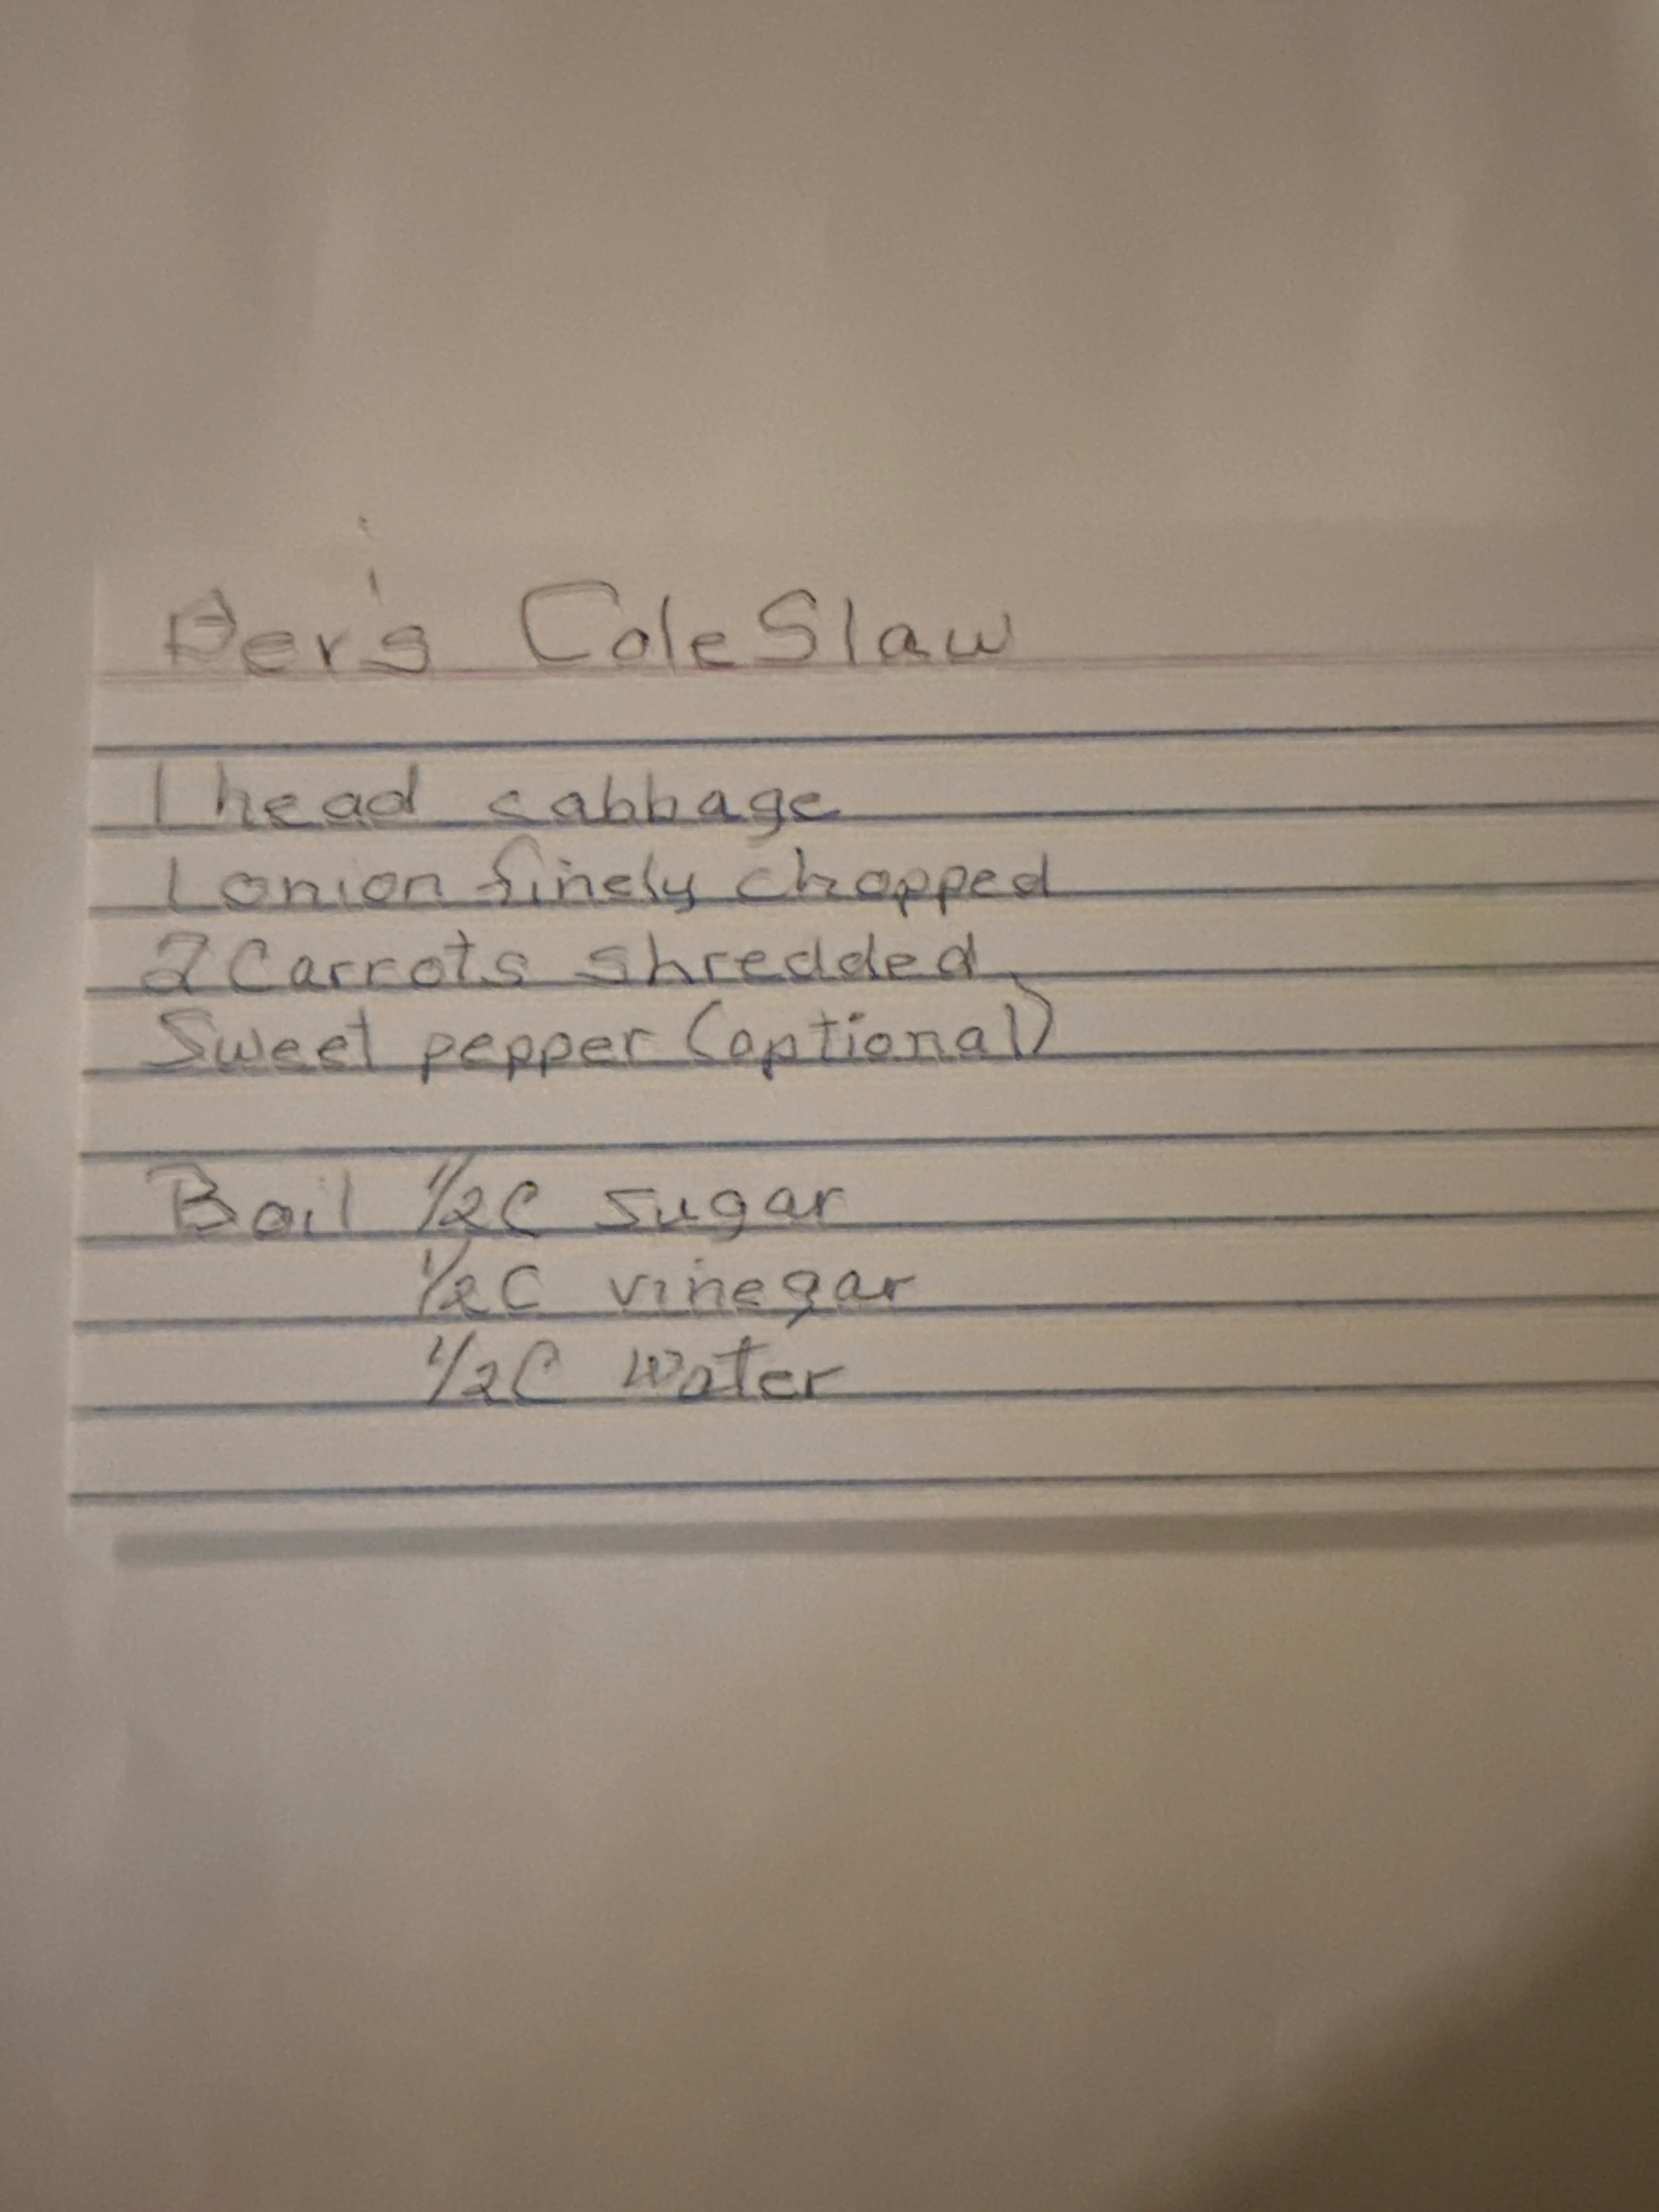 ColeSlaw
1 head cabbage
1 onion finely chopped
2 Carrots shredded
Sweet pepper (optional)
Boil 1/2C sugar
1/2C vinegar
1/2C water